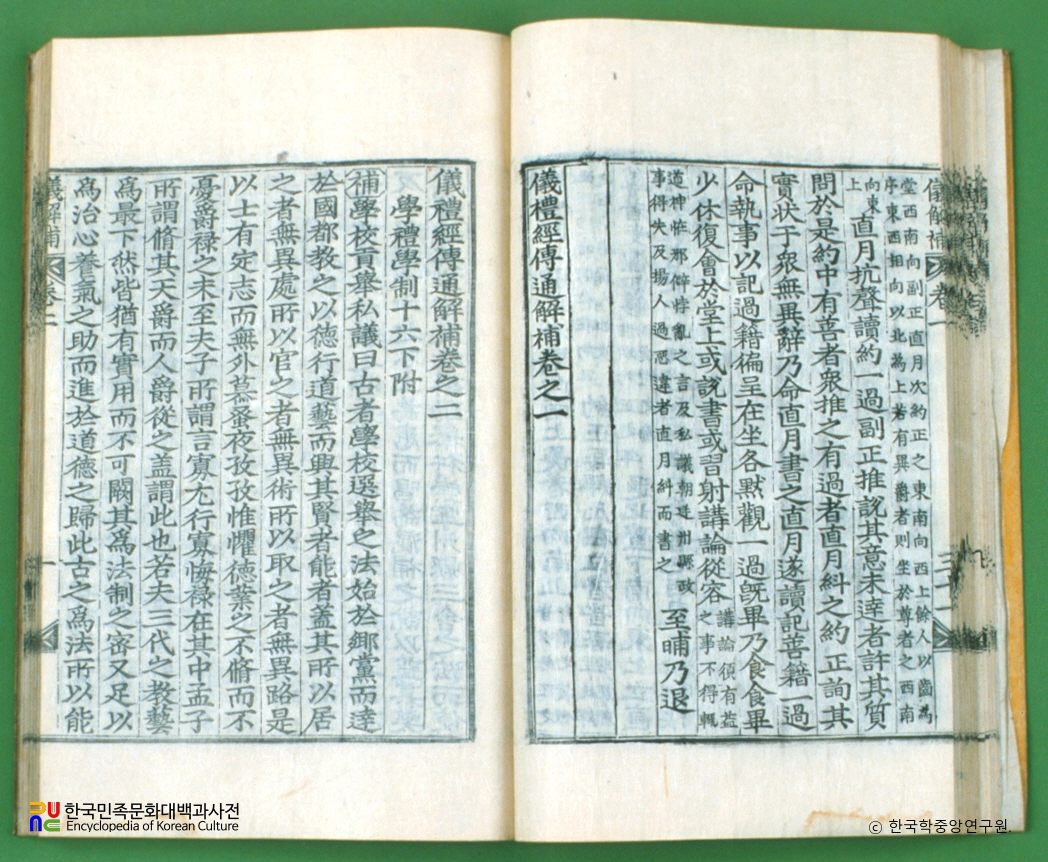 儀解補 卷一
堂西南向副正直月次約正之東南向西上餘人以齒為
序東西相向以北為上若有異爵者則坐於尊者之西南
向東
上
直月抗聲讀約一過副正推說其意未達者許其質
問於是約中有善者衆推之有過者直月糾之約正詢其
實狀于衆無異辭乃命直月書之直月遂讀記善籍一過
命執事以記過籍徧呈在坐各默觀一過旣畢乃食食畢
少休復會於堂上或說書或習射講論從容
講論須有益
之事不得輒
道神怪邪僻悖亂之言及私議朝廷州縣政
事得失及揚人過惡違者直月糾而書之
至晡乃退
儀禮經傳通解補卷之一
儀禮經傳通解補卷之二
學禮學制十六下附
補學校貢舉私議曰古者學校選舉之法始於鄉黨而達
於國都教之以德行道藝而興其賢者能者蓋其所以居
之者無異處所以官之者無異術所以取之者無異路是
以士有定志而無外慕蚤夜孜孜惟懼德業之不脩而不
憂爵祿之未至夫子所謂言寡尤行寡悔祿在其中孟子
所謂脩其天爵而人爵從之蓋謂此也若夫三代之教藝
爲最下然皆猶有實用而不可闕其爲法制之密又足以
爲治心養氣之助而進於道德之歸此古之爲法所以能
儀解補 卷二 一
한국민족문화대백과사전
Encyclopedia of Korean Culture
ⓒ 한국학중앙연구원.